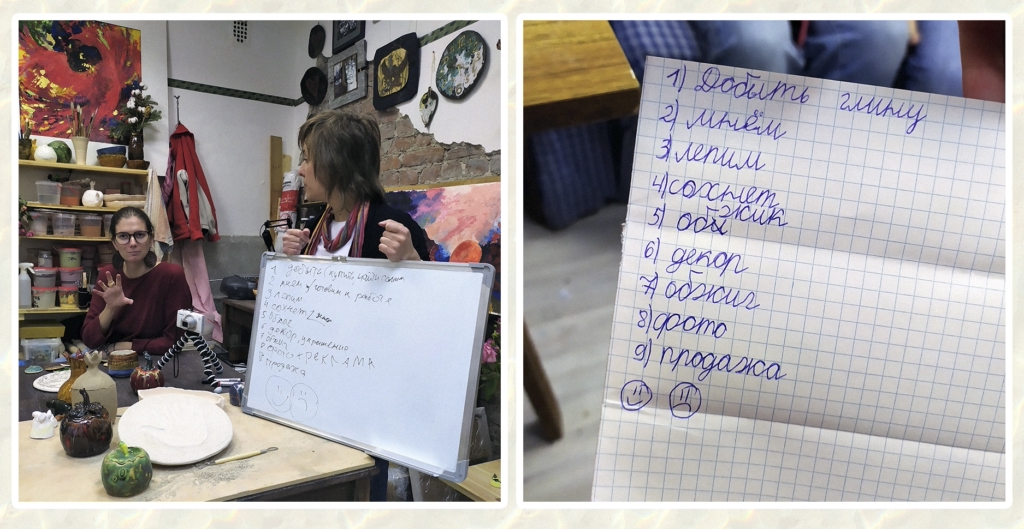 1 добыть (купить, найти
2 мнём
3 лепим
4 сохнет 2
5 обжиг
6 декор, украшение
7 обжиг
8 фото, РЕКЛАМА
9 продажа
1) Добыть глину
2) мнём
3) лепим
4) сохнет
5) обжиг
6) декор
7) обжиг
8) фото
9) продажа